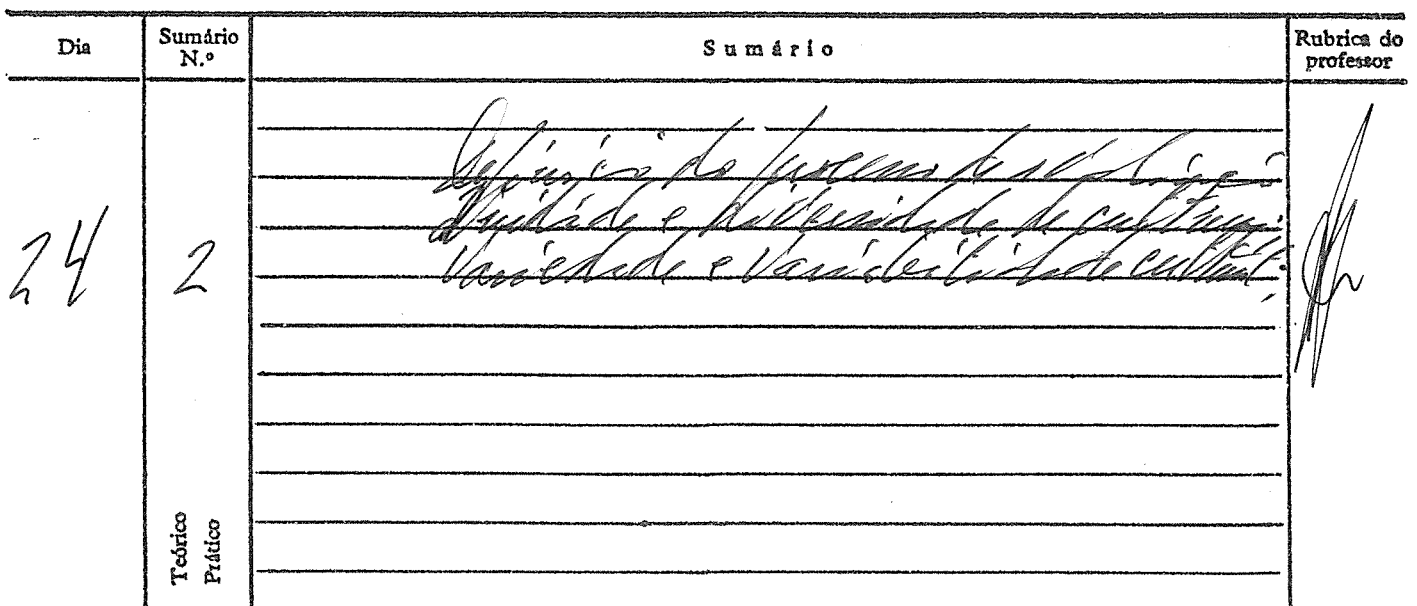 Dia Sumário N.º Sumário Rubrica do professor
Definição do processo de
24 2 Unidade e diversidade de cultura
Variedade e Variabilidade cultural
Teórico
Prático